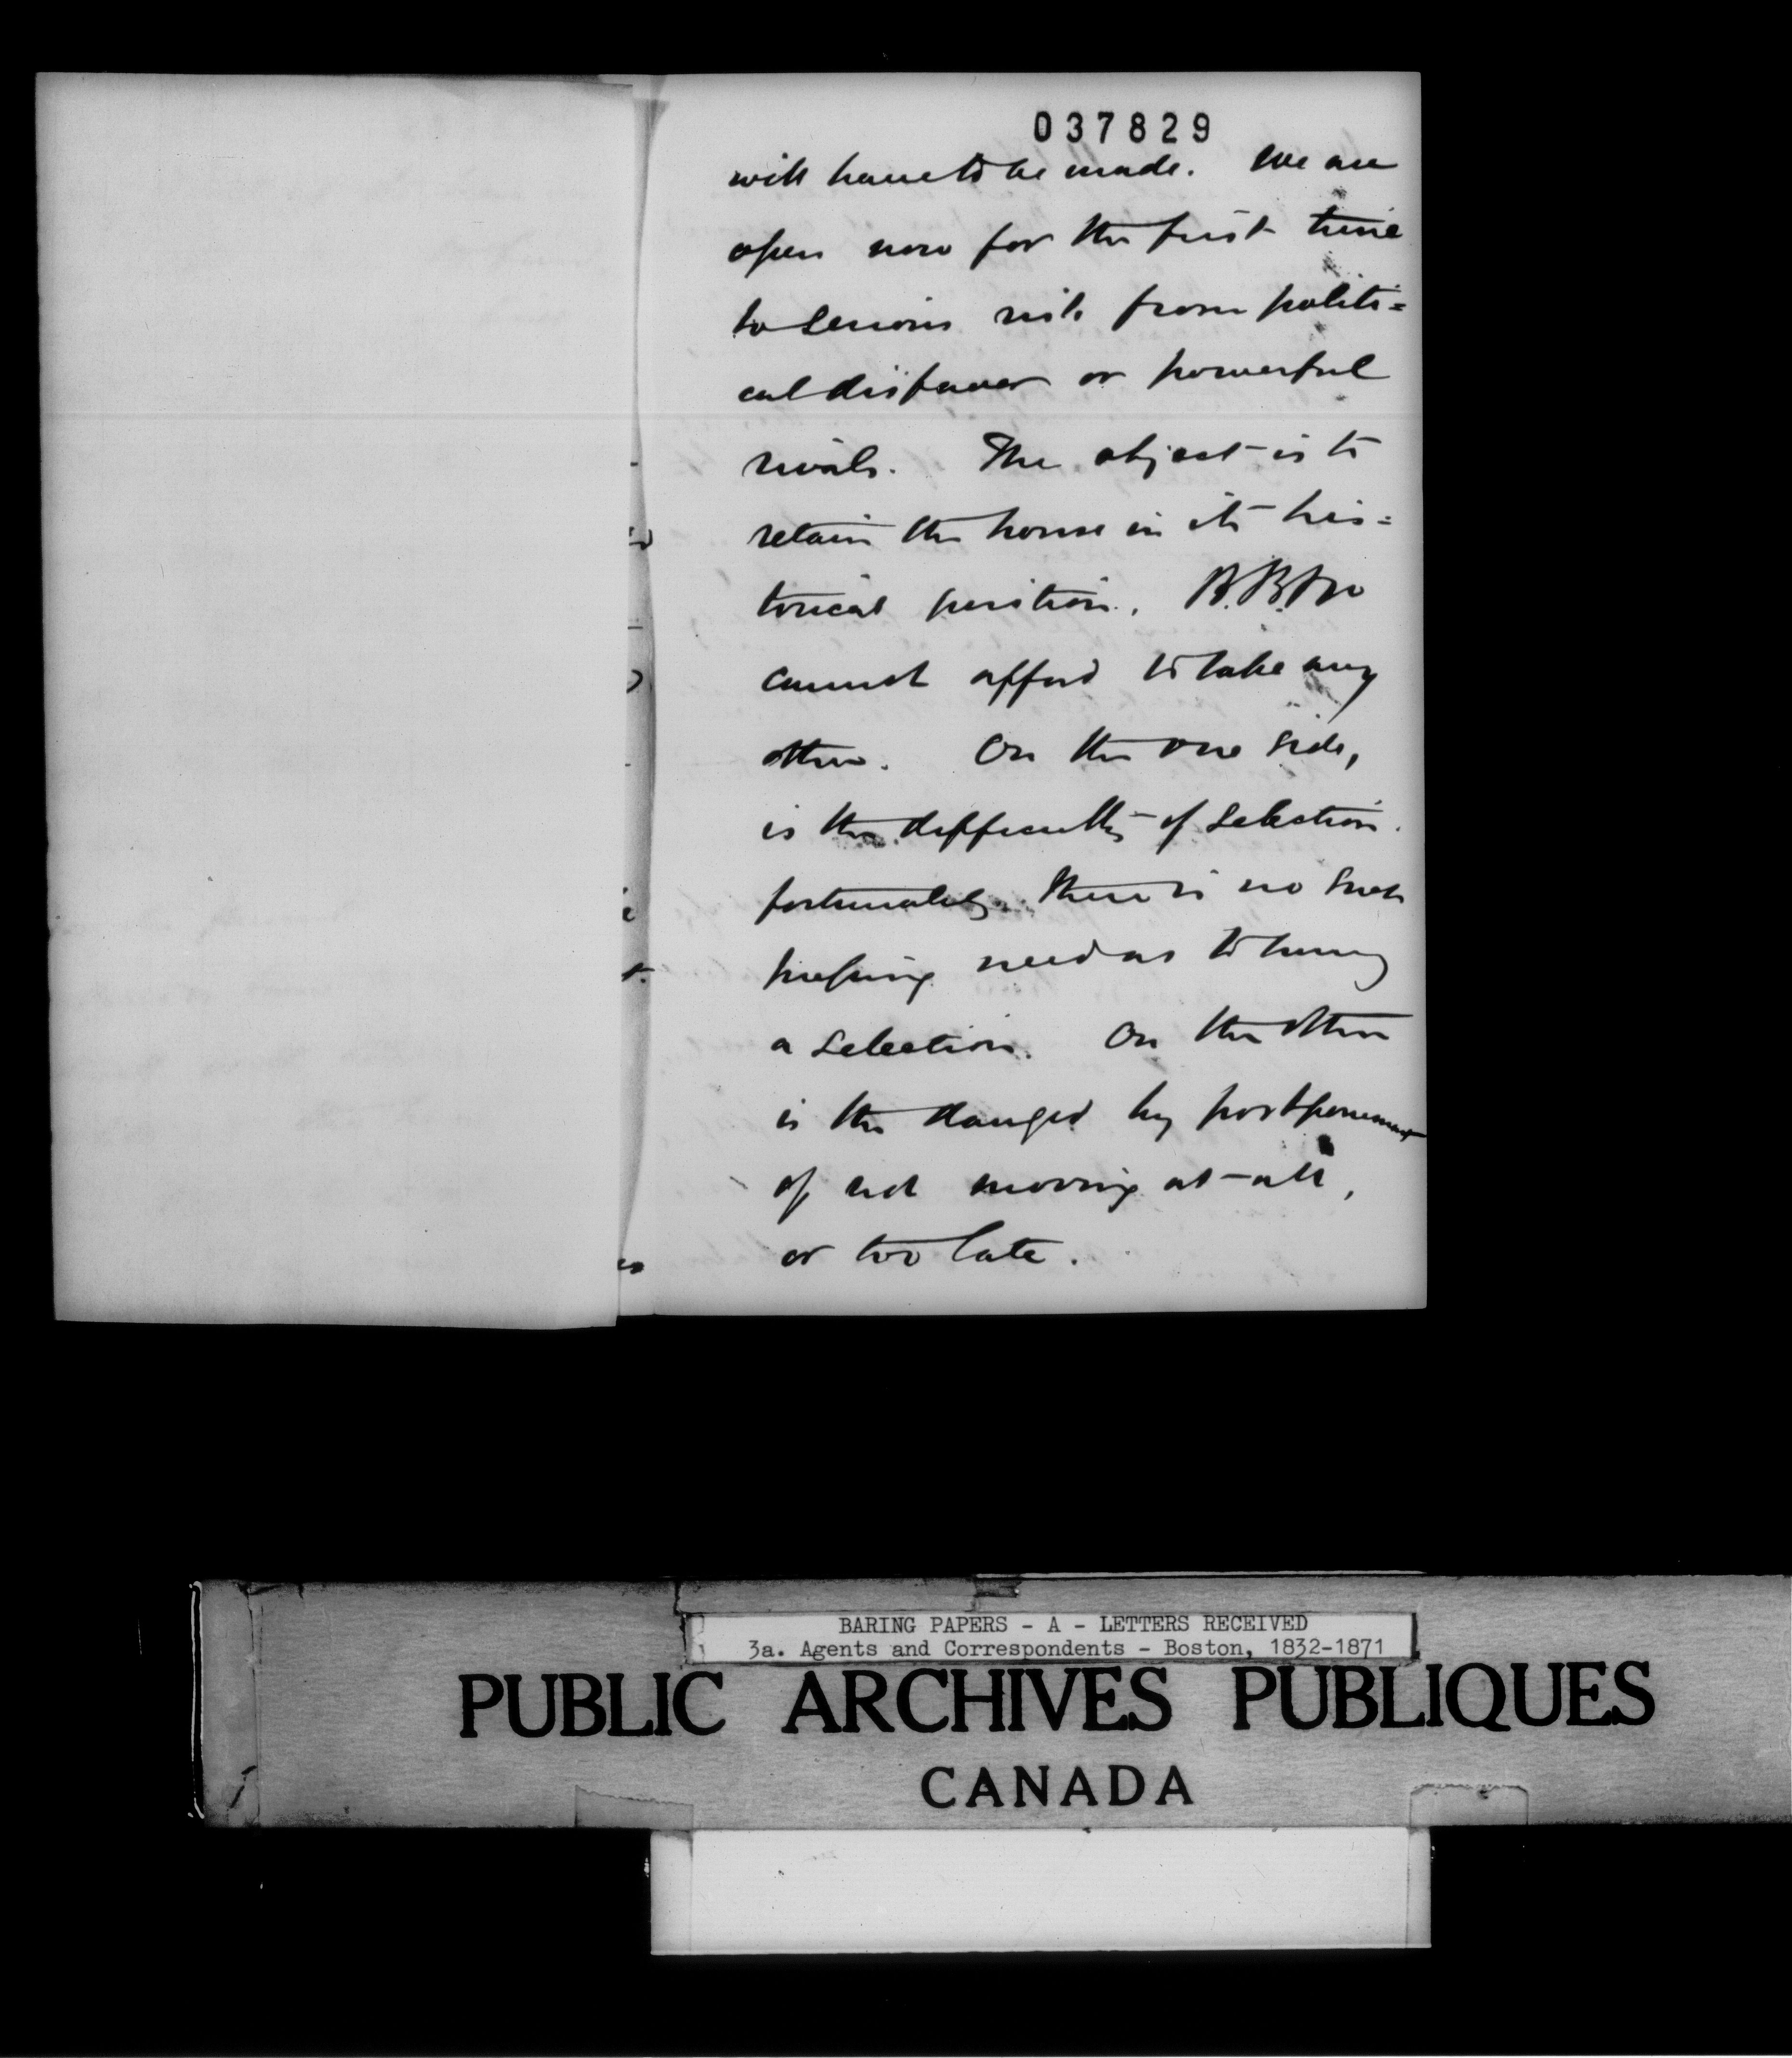 037829
will have to be made. We are
open now for the first time
to serious risk from politi=
cal disfavor or powerful
rivals. The object is to
retain the house in its his=
torical position. B.B.&Co
cannot afford to take any
other. On the one side,
is the difficulty of selection.
fortunately there is no such
pressing need as to hurry
a selection. On the other
is the danger by postponement
of not moving at all,
or too late.
BARING PAPERS - A - LETTERS RECEIVED
3a. Agents and Correspondents - Boston, 1832-1871
PUBLIC ARCHIVES PUBLIQUES
CANADA